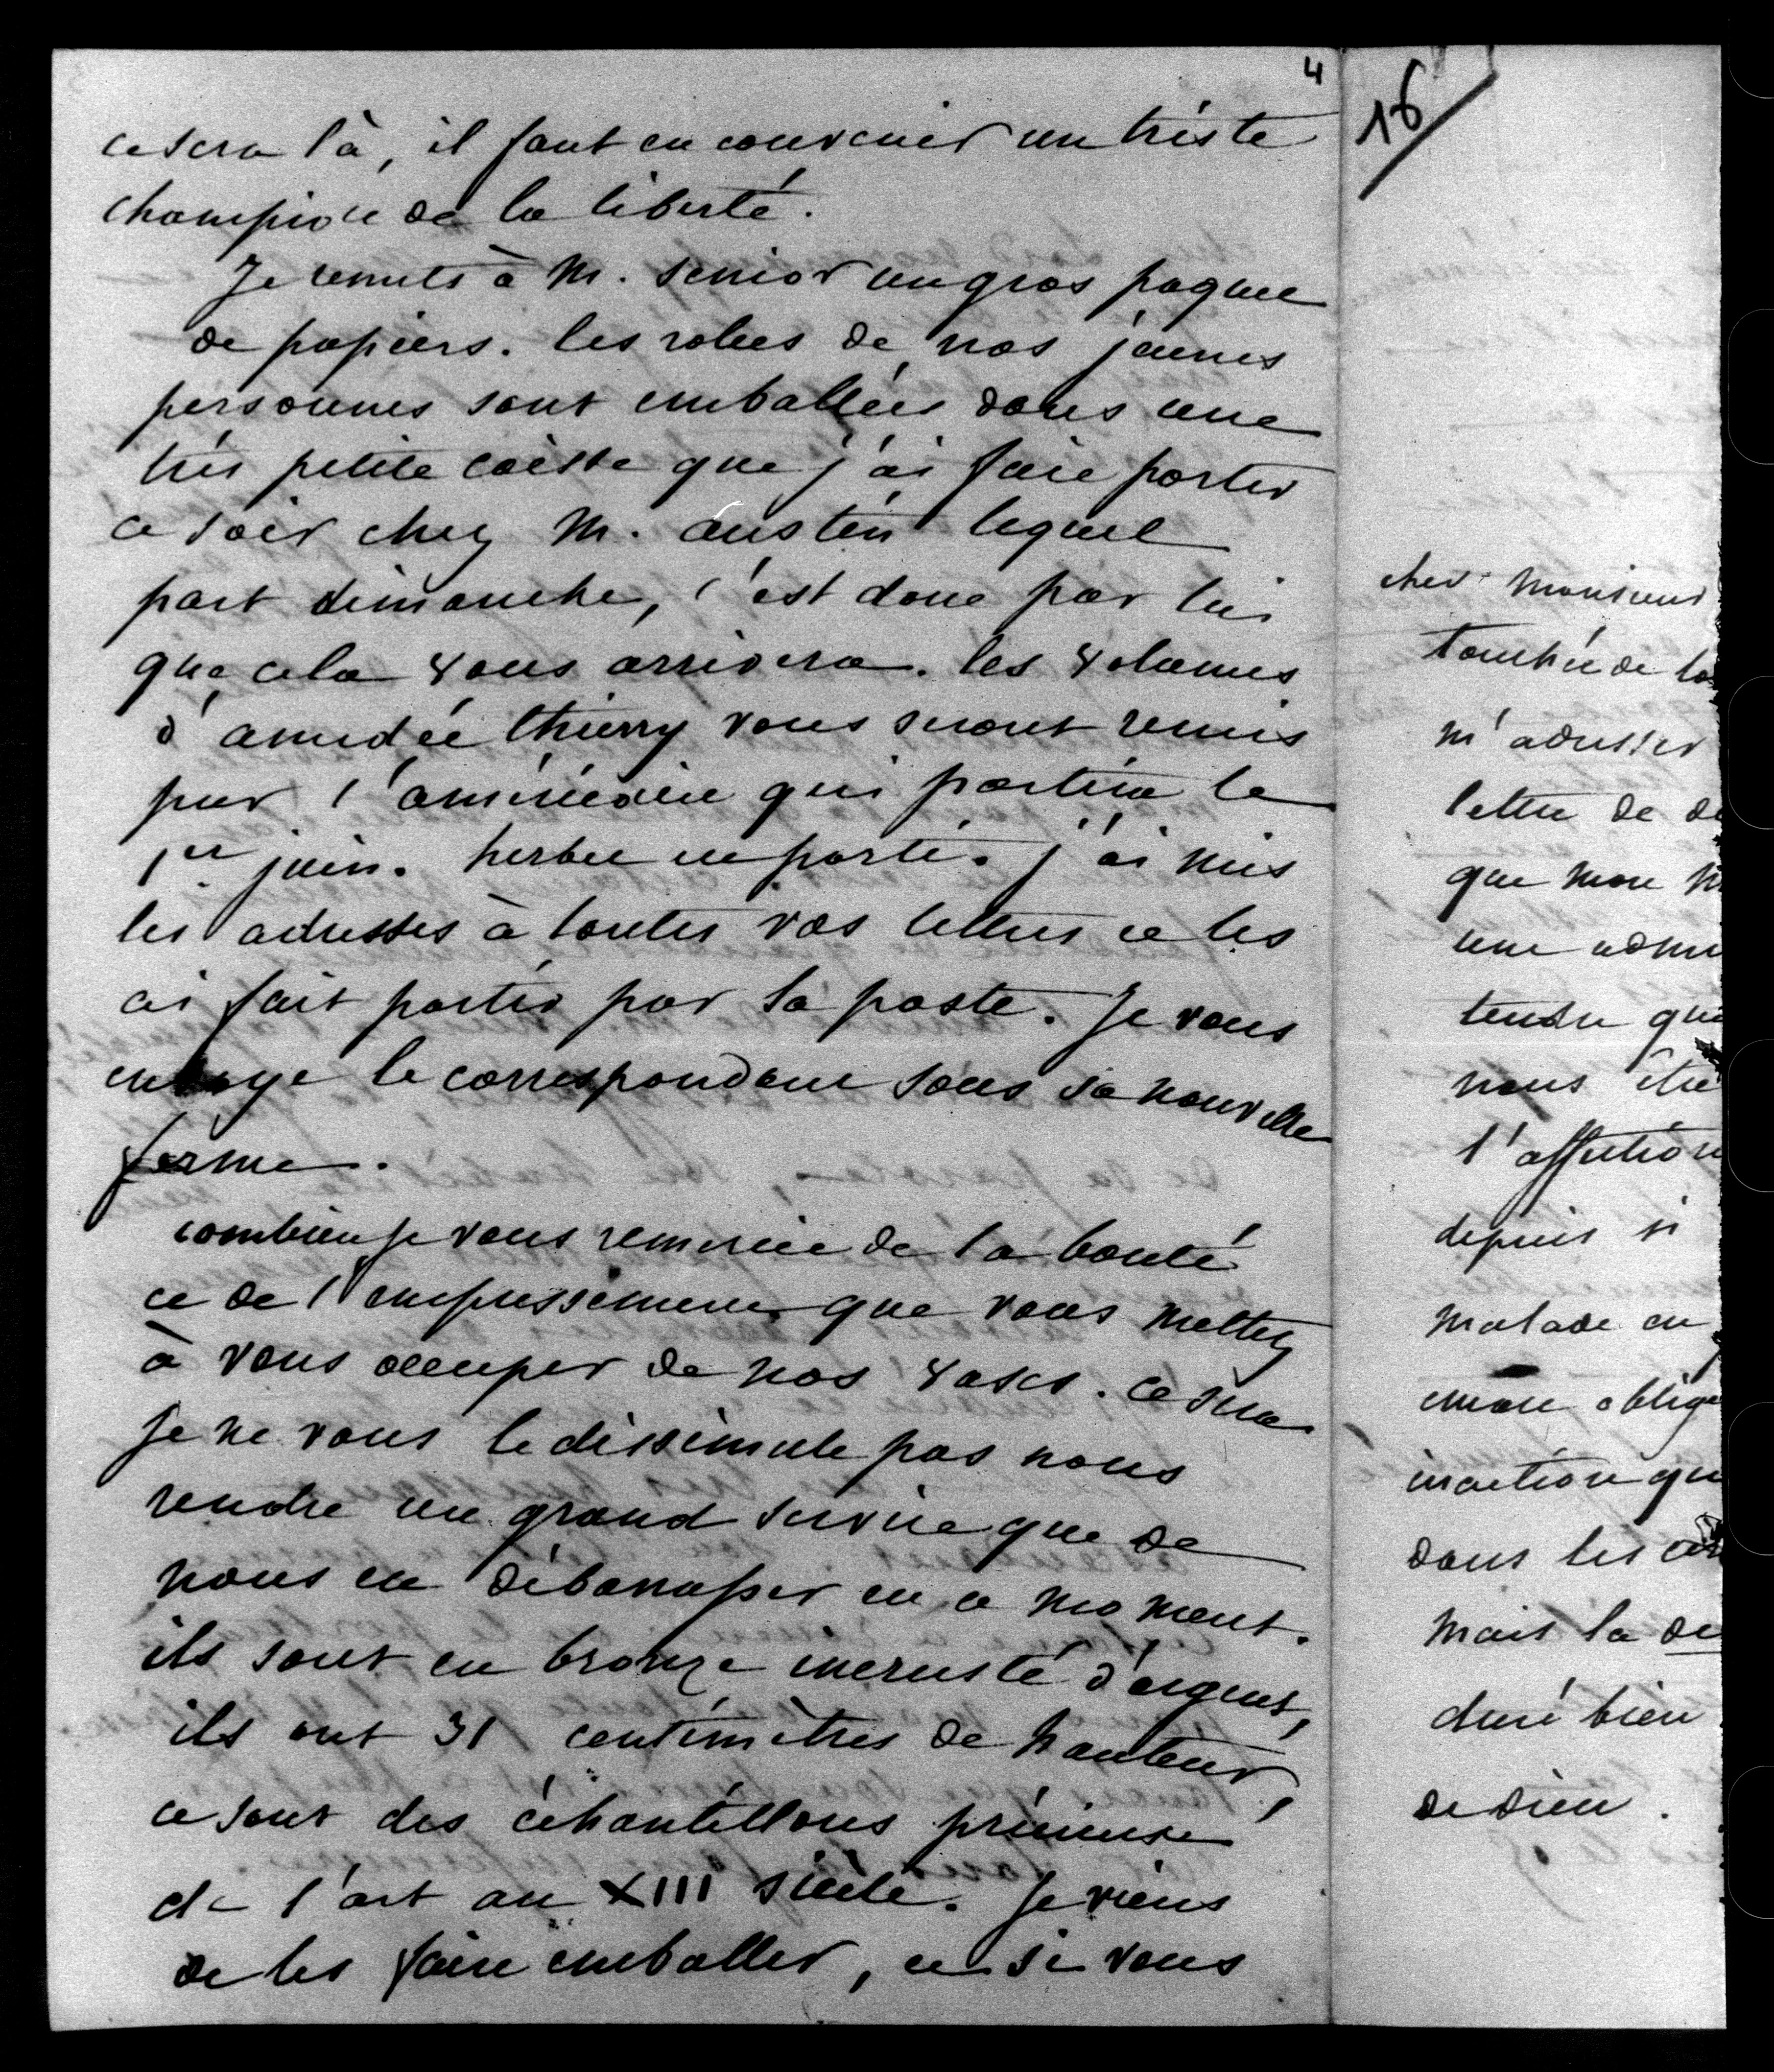 4
ce sera là, il faut en convenir un triste
champion de la liberté.
Je remets à M. senior un gros paquet
de papiers. les robes de nos jeunes
personnes sont emballées dans une
très petite caisse que j'ai fait porter
ce soir chez M. austen lequel
part dimanche, c'est donc par lui
que cela vous arrivera. les volumes
d'amédée thierry vous seront remis
par l'américain qui partira le
1er juin. herbet est parti. j'ai mis
les adresses à toutes vos lettres et les
ai fait partir par la poste. Je vous
envoye le correspondant sous sa nouvelle
forme.
combien je vous remercie de la bonté
et de l'empressement que vous mettez
à vous occuper de nos vases. ce sera
je ne vous le dissimule pas nous
rendre un grand service que de
nous en débarrasser en ce moment.
ils sont en bronze incrusté d'argent,
ils ont 31 centimètres de hauteur,
ce sont des échantillons précieuse
de l'art au XIII siècle. Je viens
de les faire emballer, et si vous
16
cher Monsieur
touchée de la
m'adresser
lettre de de
que mon M
une admi
tendre que
nous étie
l'affection
depuis si
malade en
encore oblige
inaction qu
dans les
mais la de
duré bien
de dieu.